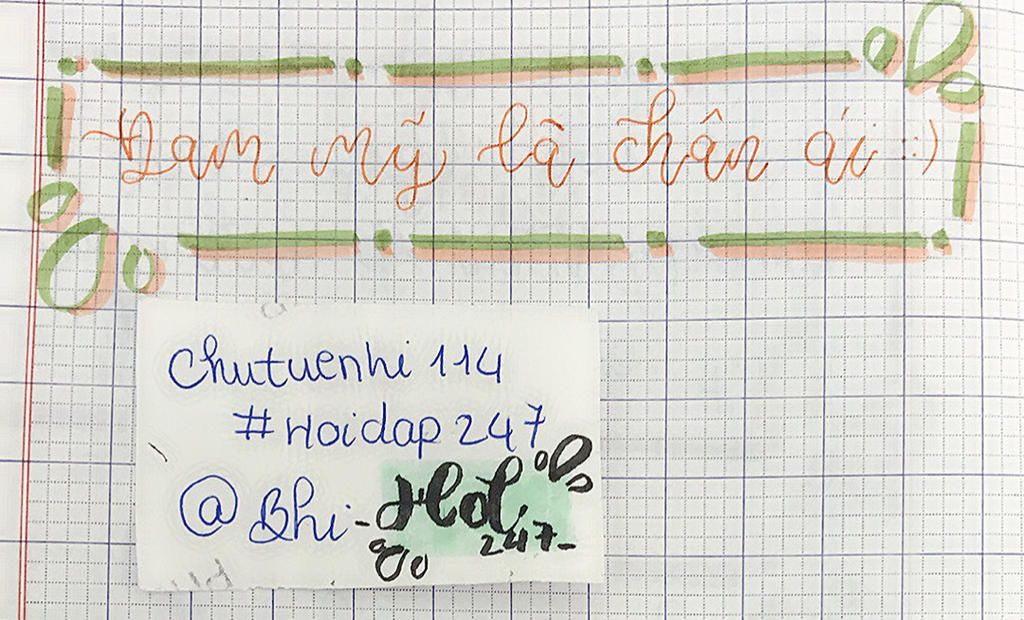 Đam mỹ là chân ái :)
Chutuenhi 114
#Hoidap 247
@Bhi-Hội
247-